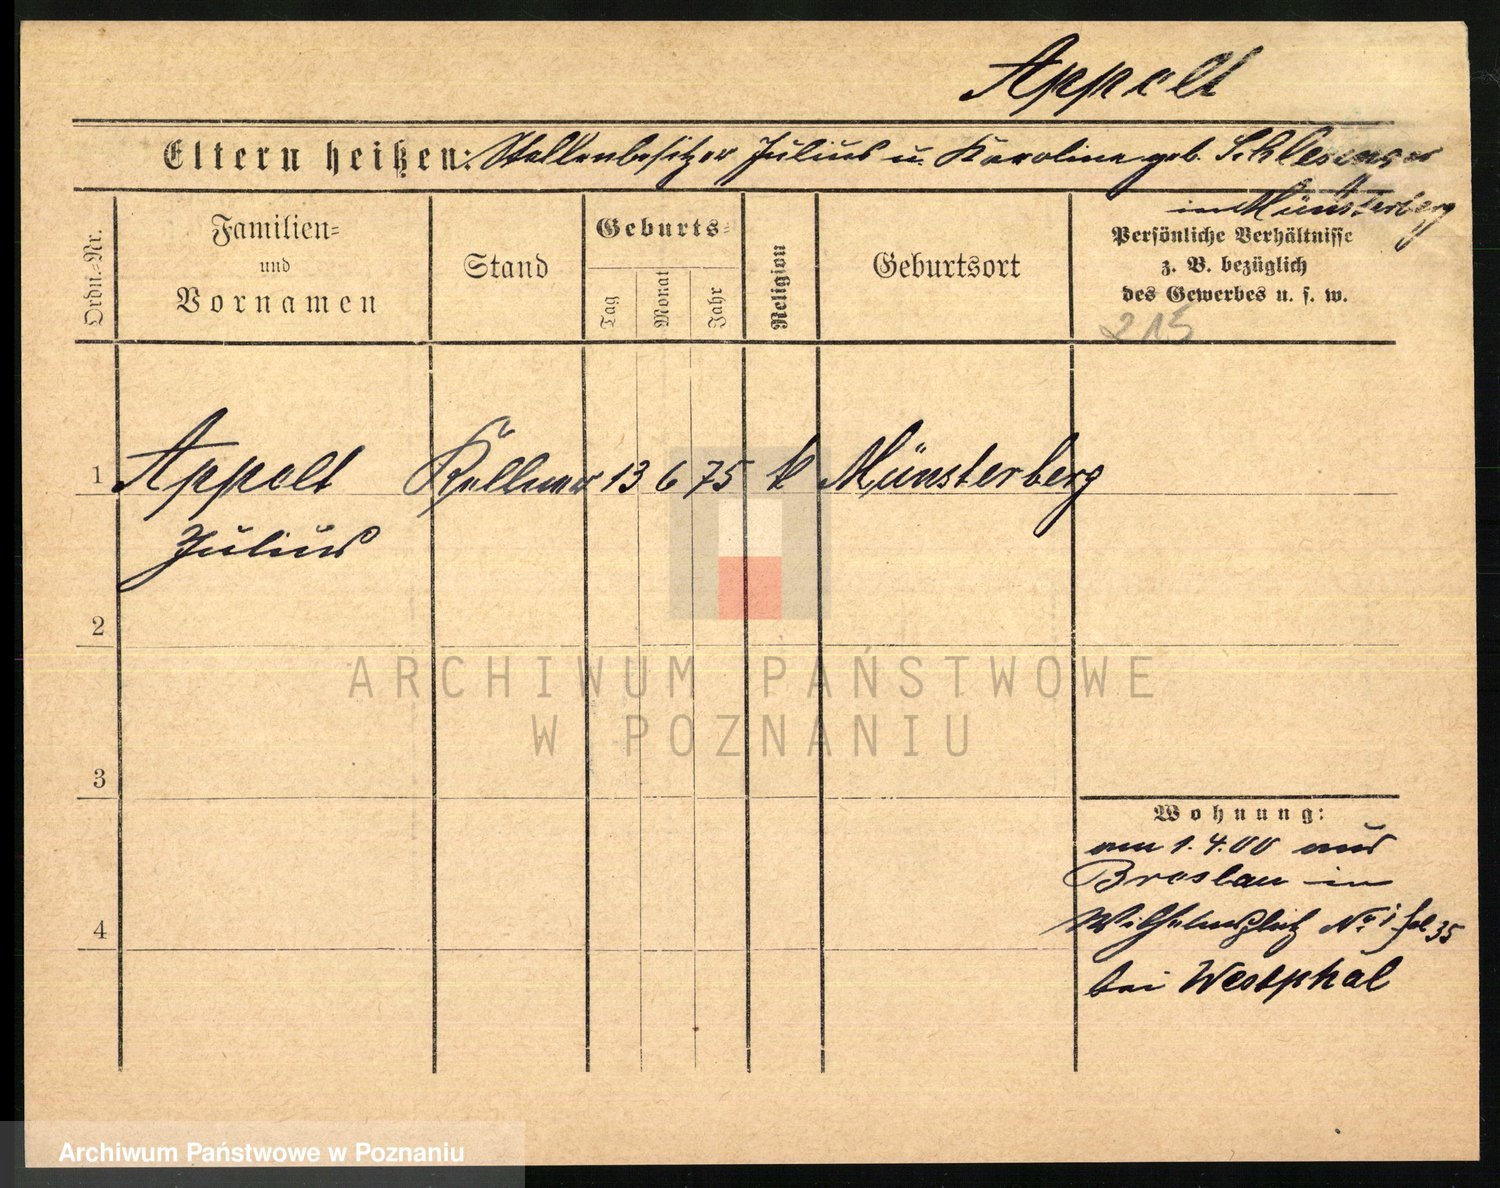 Appolt
Eltern heißen: Stellenbesitzer Julius u. Karoline geb. Schlesinger
in Münsterberg
Ordn.-Nr.
Familien-
und
Vornamen
Stand
Geburts-
Tag
Monat
Jahr
Religion
Geburtsort
Persönliche Verhältnisse
z. B. bezüglich
des Gewerbes u. s. w.
215
1 Appolt Kellner 13 6 75 k Münsterberg
Julius
2
ARCHIWUM PAŃSTWOWE
W POZNANIU
3
Wohnung:
am 1.4.00 aus
Breslau in
Wilhelmsplatz No 1 fol 35
4
bei Westphal
Archiwum Państwowe w Poznaniu